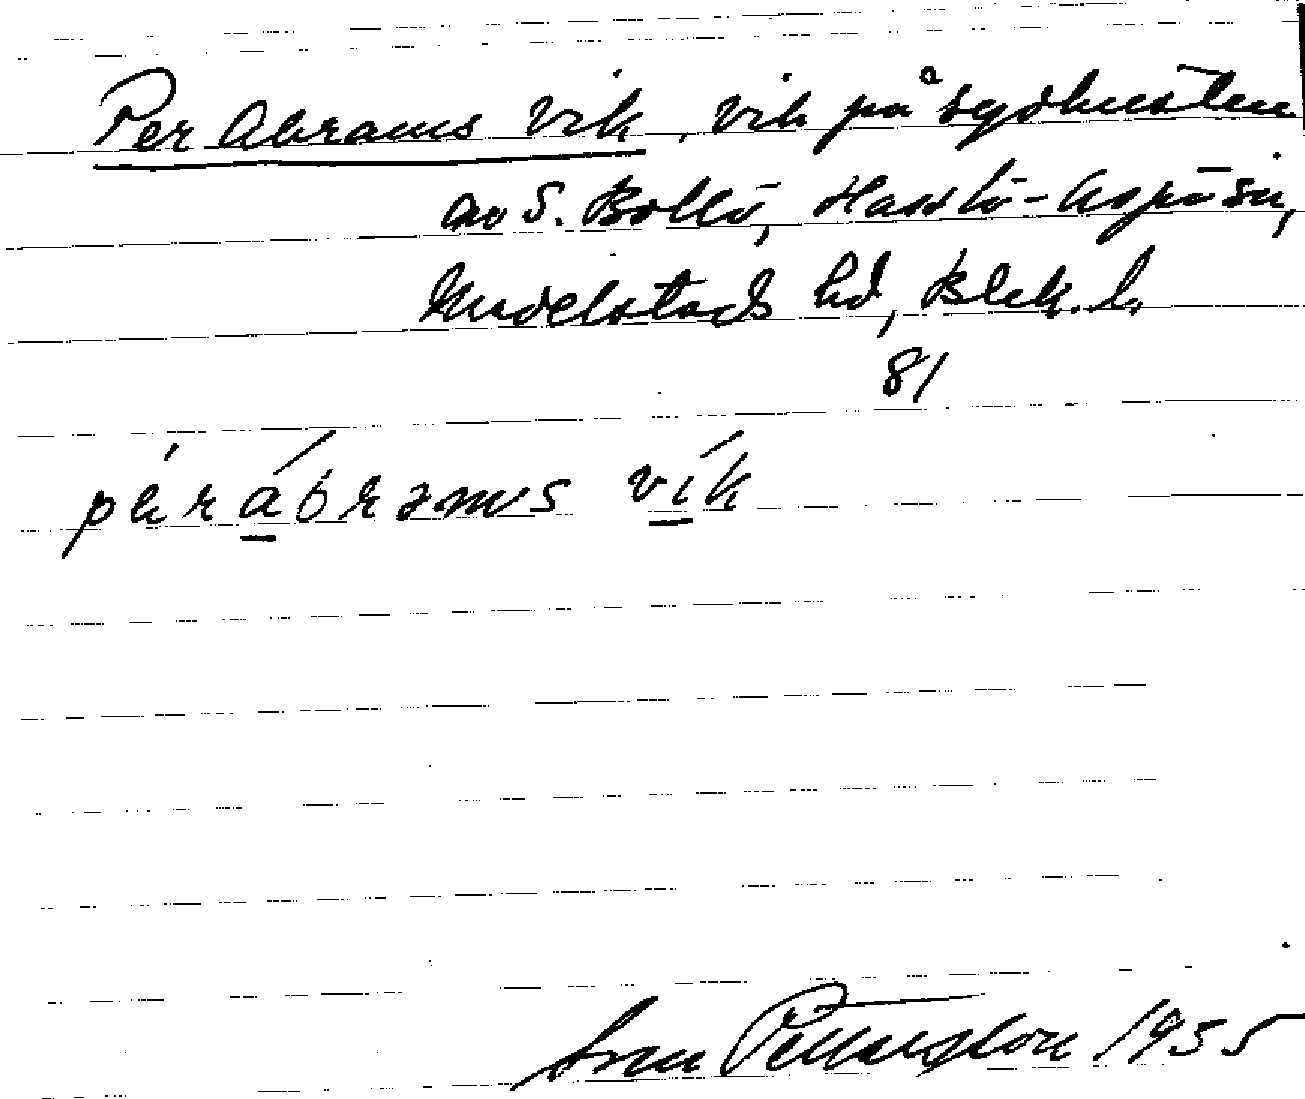 Per Abrams vik, vik på sydkusten
av S. Bollö, Hasslö-Aspö sn,
Medelstads hd, Blek. l.
81
pär ábrams vík
Sven Petterson 1955